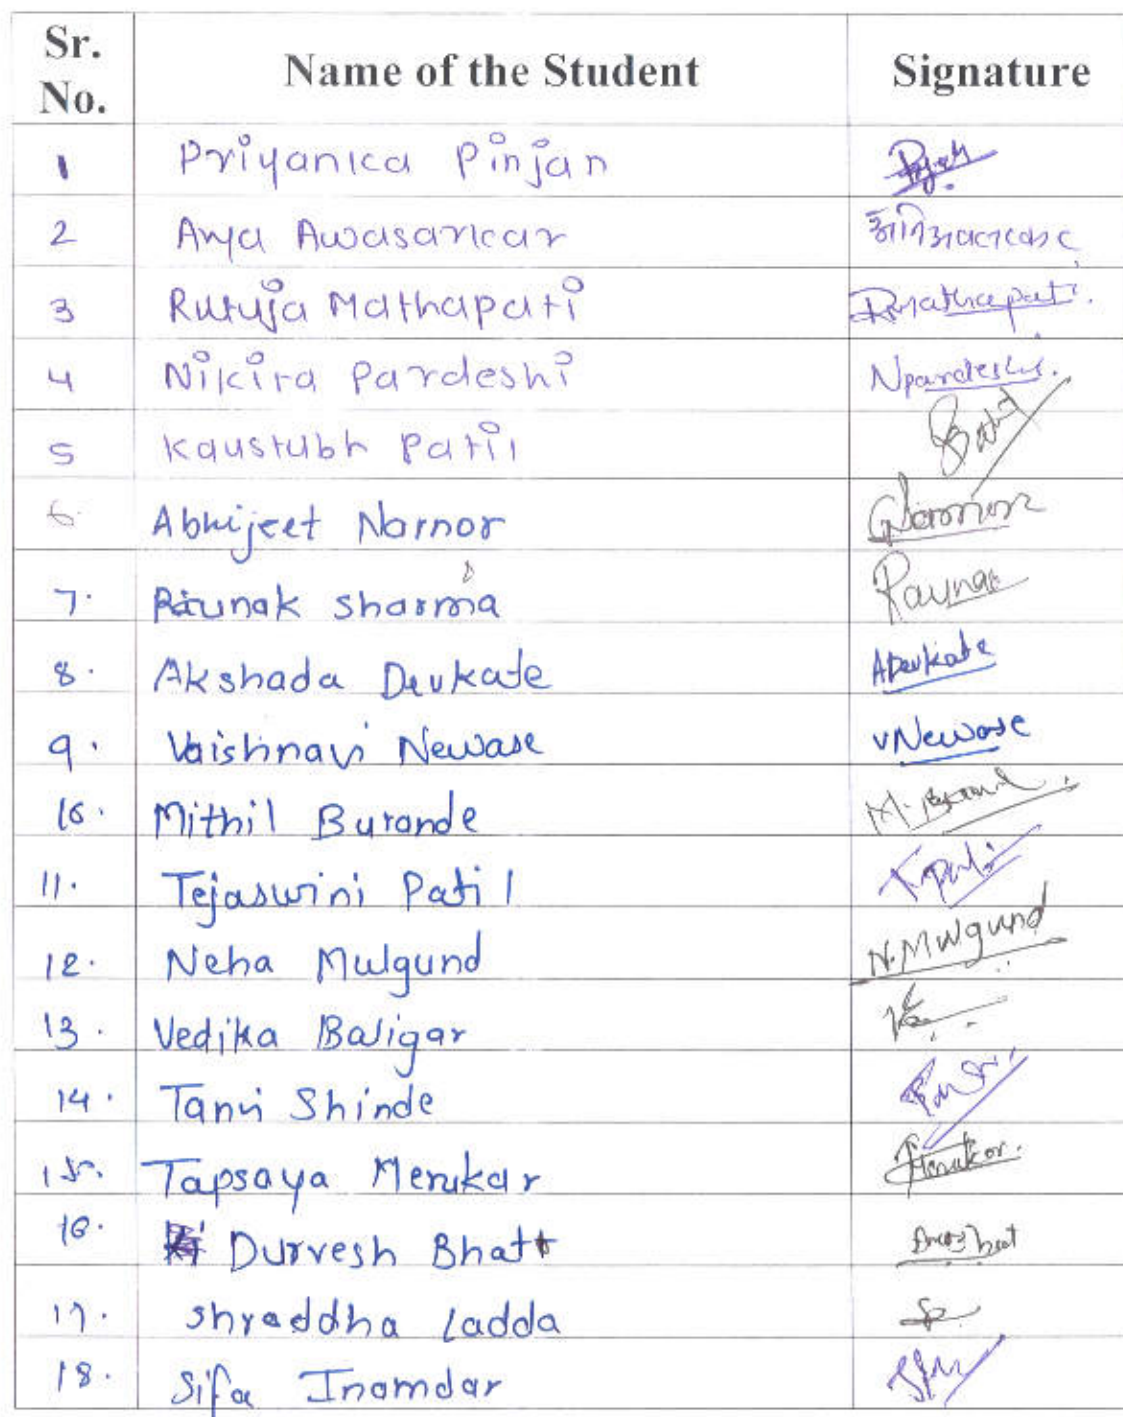 Sr. No. Name of the Student Signature
1 Priyanka Pinjan
2 Arya Awasarkar
3 Rutuja Mathapati RMathapati.
4 Nikita Pardeshi NPardeshi.
5 Kaustubh Patil
6. Abhijeet Narnor
7. Raunak Sharma Raunak
8. Akshada Devkate ADevkate
9. Vaishnavi Newase VNewase
10. Mithil Burande
11. Tejaswini Patil
12. Neha Mulgund N.Mulgund
13. Vedika Baligar
14. Tanvi Shinde
15. Tapsaya Menkar
16. Durvesh Bhatt
17. Shraddha Ladda
18. Sifa Inamdar